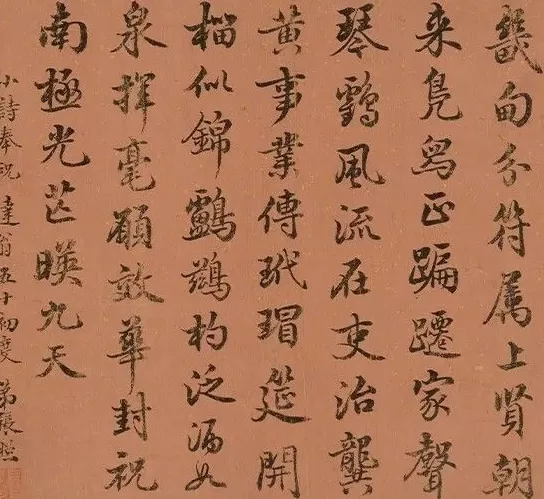 畿甸分符属上賢朝
来鳧舄正蹁躚家聲
琴鸖風流在吏治龔
黄事業傳玳瑁筵開
榴似錦鸕鷀杓泛酒如
泉揮毫願效華封祝
南極光芒暎九天
小詩奉祝 達翁五十初度 弟張照